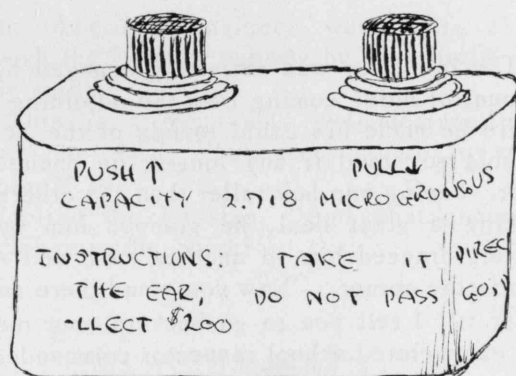 PUSH↑ PULL↓
CAPACITY 2.718 MICROGRUNGUS
INSTRUCTIONS: TAKE IT DIREC
THE EAR; DO NOT PASS GO;
LLECT $200